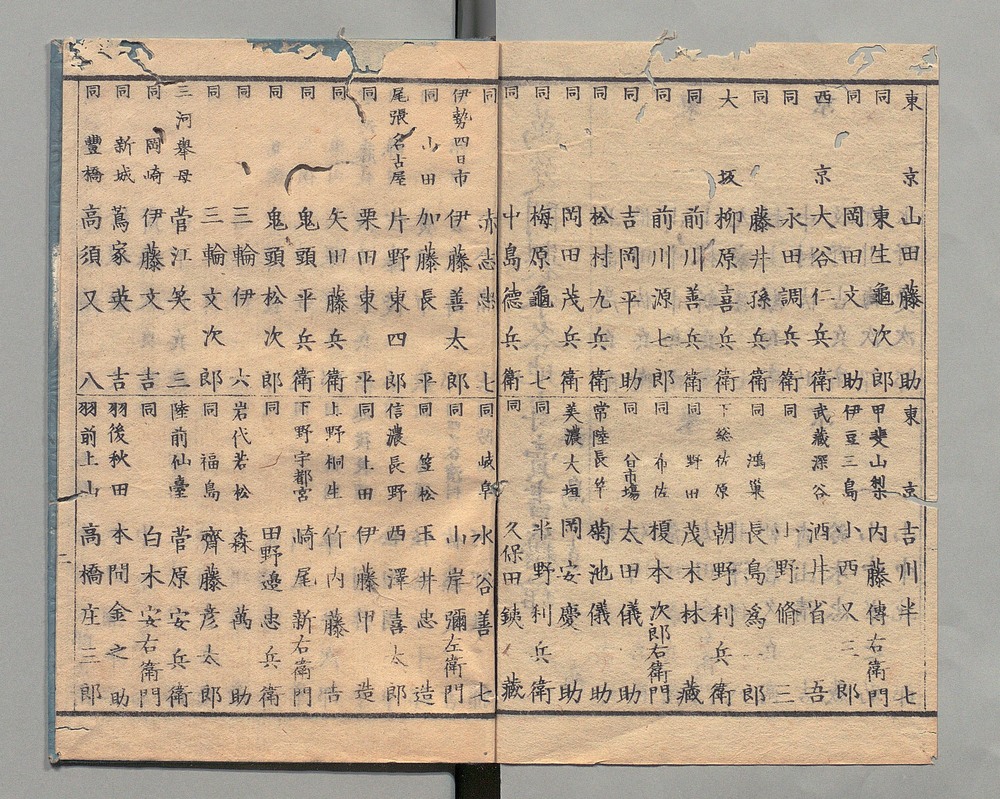 東京 山田藤助
同 東生龜次郎
同 岡田文助
西京 大谷仁兵衛
同 永田調兵衛
同 藤井孫兵衛
大坂 柳原喜兵衛
同 前川善兵衛
同 前川源七郎
同 吉岡平助
同 松村九兵衛
同 岡田茂兵衛
同 梅原龜七
同 中島德兵衛
同 赤志忠七
伊勢四日市 伊藤善太郎
同山田 加藤長平
尾張名古屋 片野東四郎
同 栗田東平
同 矢田藤兵衛
同 鬼頭平兵衛
同 鬼頭松次郎
同 三輪伊六
同 三輪文次郎
三河擧母 菅江笑三
同岡崎 伊藤文吉
同新城 蔦家英吉
同豐橋 高須又八
東京 吉川半七
甲斐山梨 内藤傳右衛門
伊豆三島 小西又三郎
武藏深谷 酒井省吾
同 小野脩三
同鴻巢 長島爲一郎
下総佐原 朝野利兵衛
同野田 茂木林藏
同布佐 榎本次郎右衛門
同 市塲 太田儀助
常陸長竿 菊池儀助
美濃大垣 岡安慶助
同 米野利兵衛
同 久保田銕藏
同岐阜 水谷善七
同 山岸彌左衛門
同笠松 玉井忠造
信濃長野 西澤喜太郎
同上田 伊藤甲造
上野桐生 竹内藤吉
下野宇都宮 崎尾新右衛門
同 田野邉忠兵衛
岩代若松 森萬助
同福島 齊藤彦太郎
陸前仙臺 菅原安兵衛
同 白木安右衛門
羽後秋田 本間金之助
羽前上山 高橋庄三郎